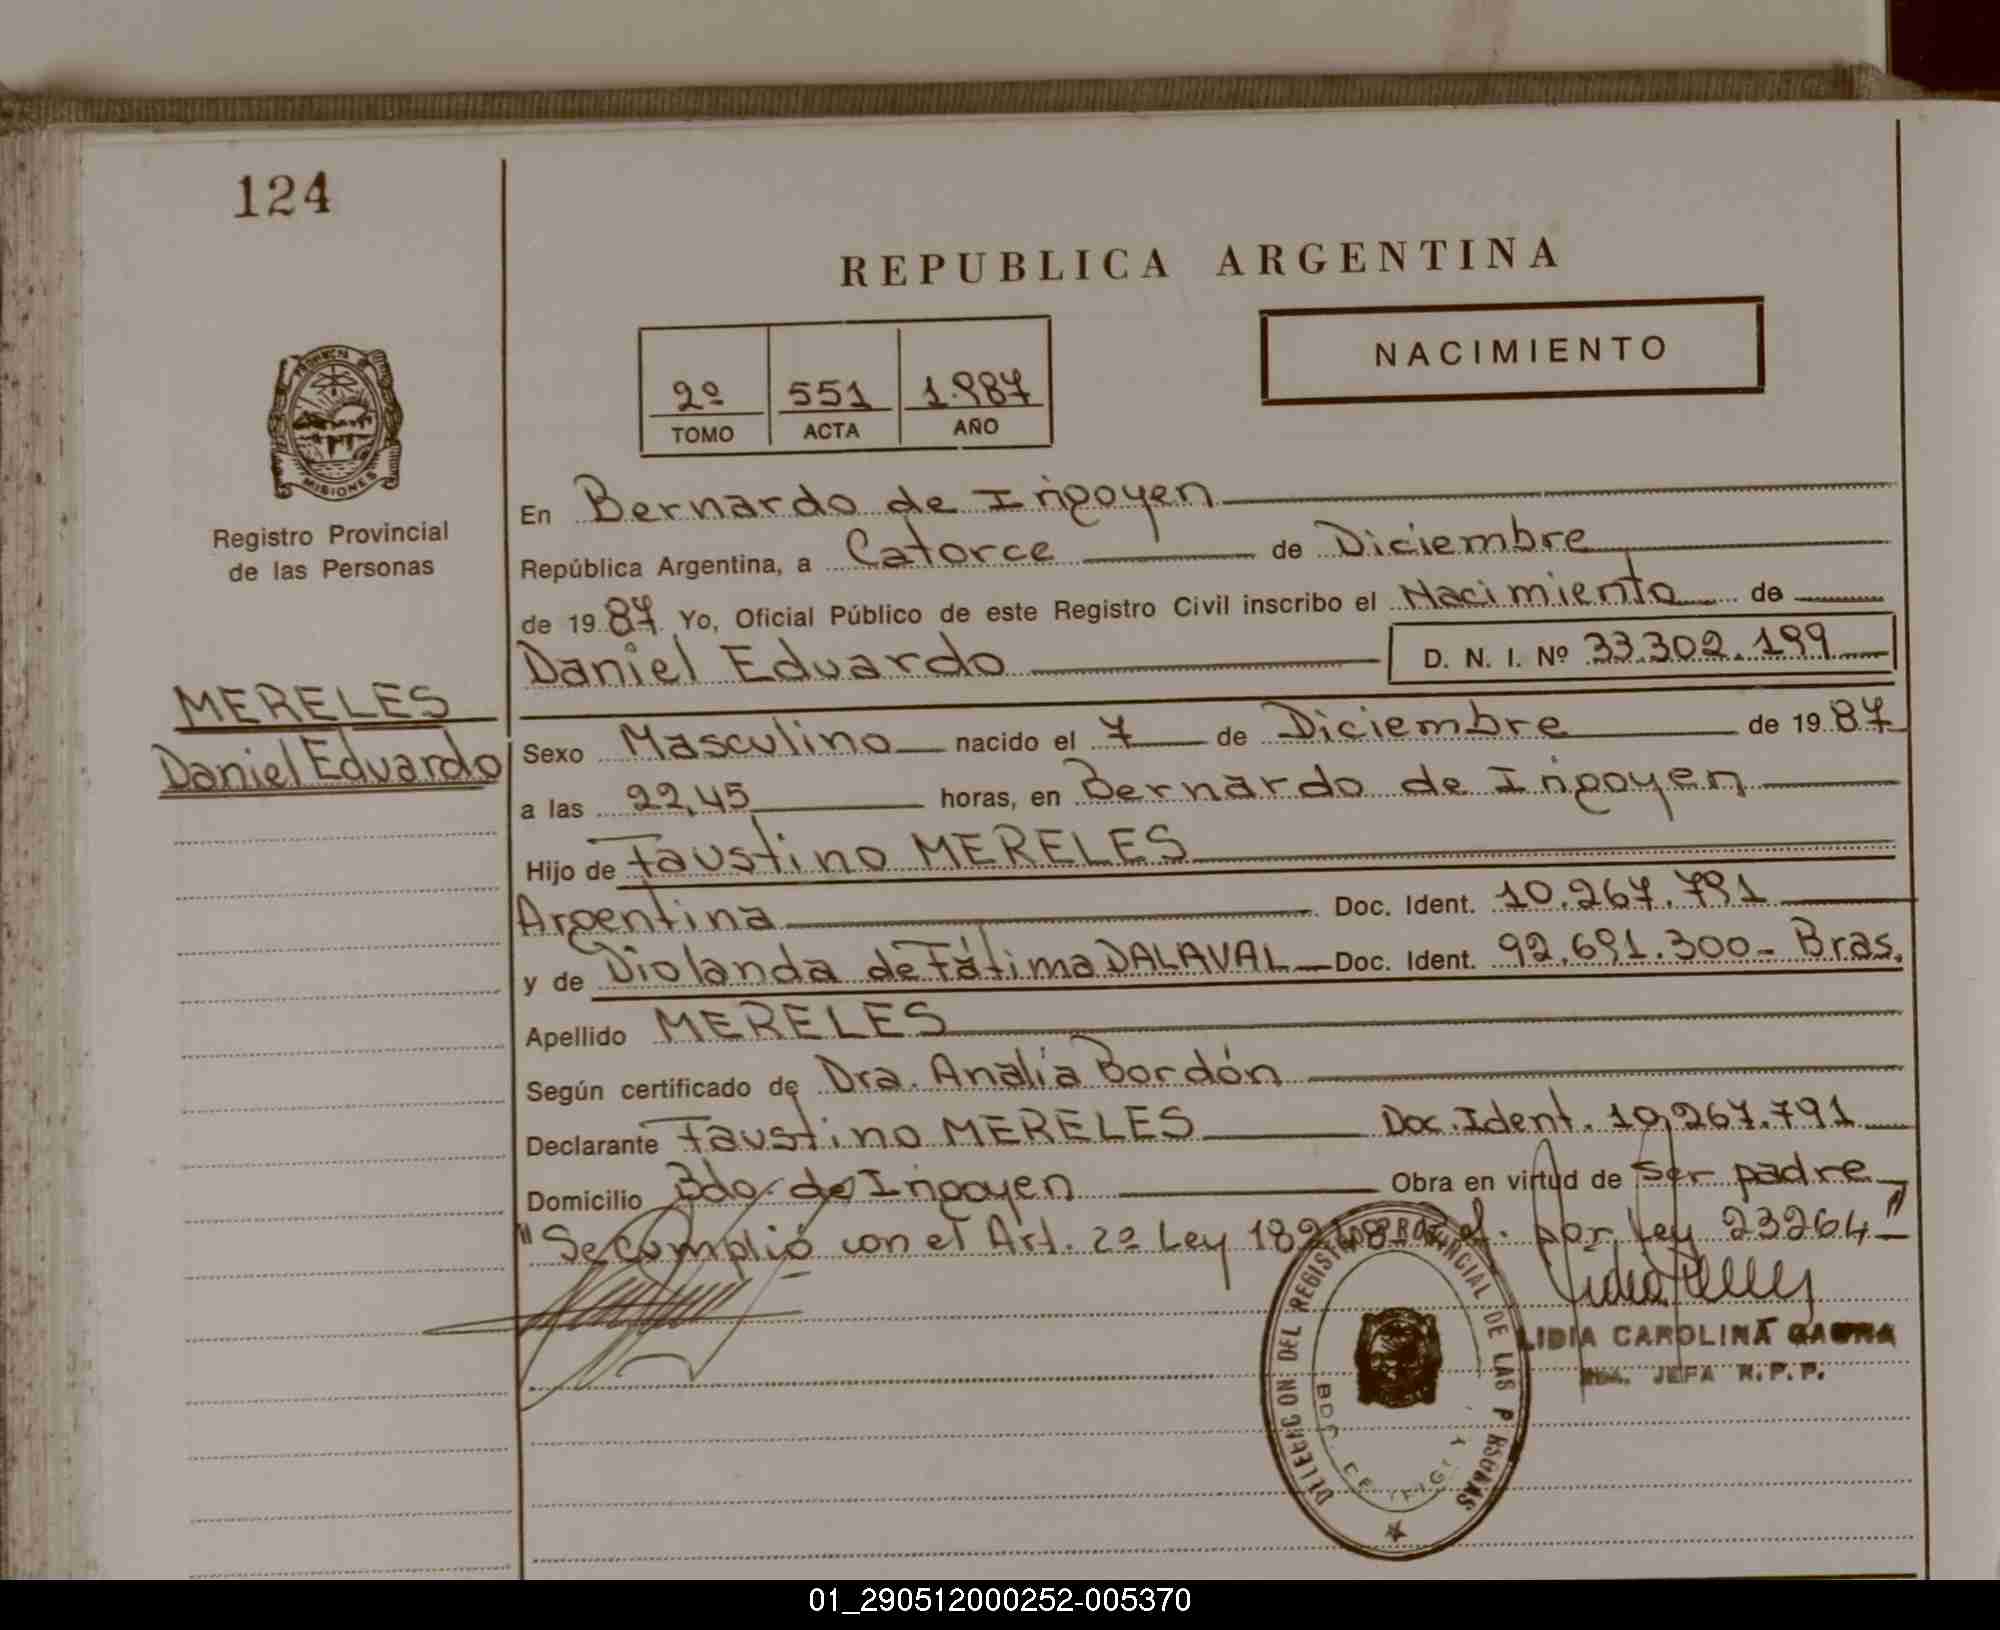 124
REPUBLICA ARGENTINA
NACIMIENTO
2º 551 1.987
TOMO ACTA AÑO
PROVINCIA
MISIONES
Registro Provincial
de las Personas
MERELES
Daniel Eduardo
En Bernardo de Irigoyen
República Argentina, a Catorce de Diciembre
de 1987 Yo, Oficial Público de este Registro Civil inscribo el Nacimiento de
Daniel Eduardo D. N. I. Nº 33.302.199
Sexo Masculino nacido el 7 de Diciembre de 1987
a las 22,45 horas, en Bernardo de Irigoyen
Hijo de Faustino MERELES
Argentina Doc. Ident. 10.267.791
y de Diolanda de Fátima DALAVAL Doc. Ident. 92.691.300- Bras.
Apellido MERELES
Según certificado de Dra. Analía Bordón
Declarante Faustino MERELES Doc. Ident. 10,267.791
Domicilio Bdo. de Irigoyen Obra en virtud de ser padre
"Se cumplió con el Art. 2º Ley por Ley 23264"
DELEGACION DEL REGISTRO PROVINCIAL DE LAS PERSONAS
LIDIA CAROLINA
JEFA R.P.P.
01_290512000252-005370